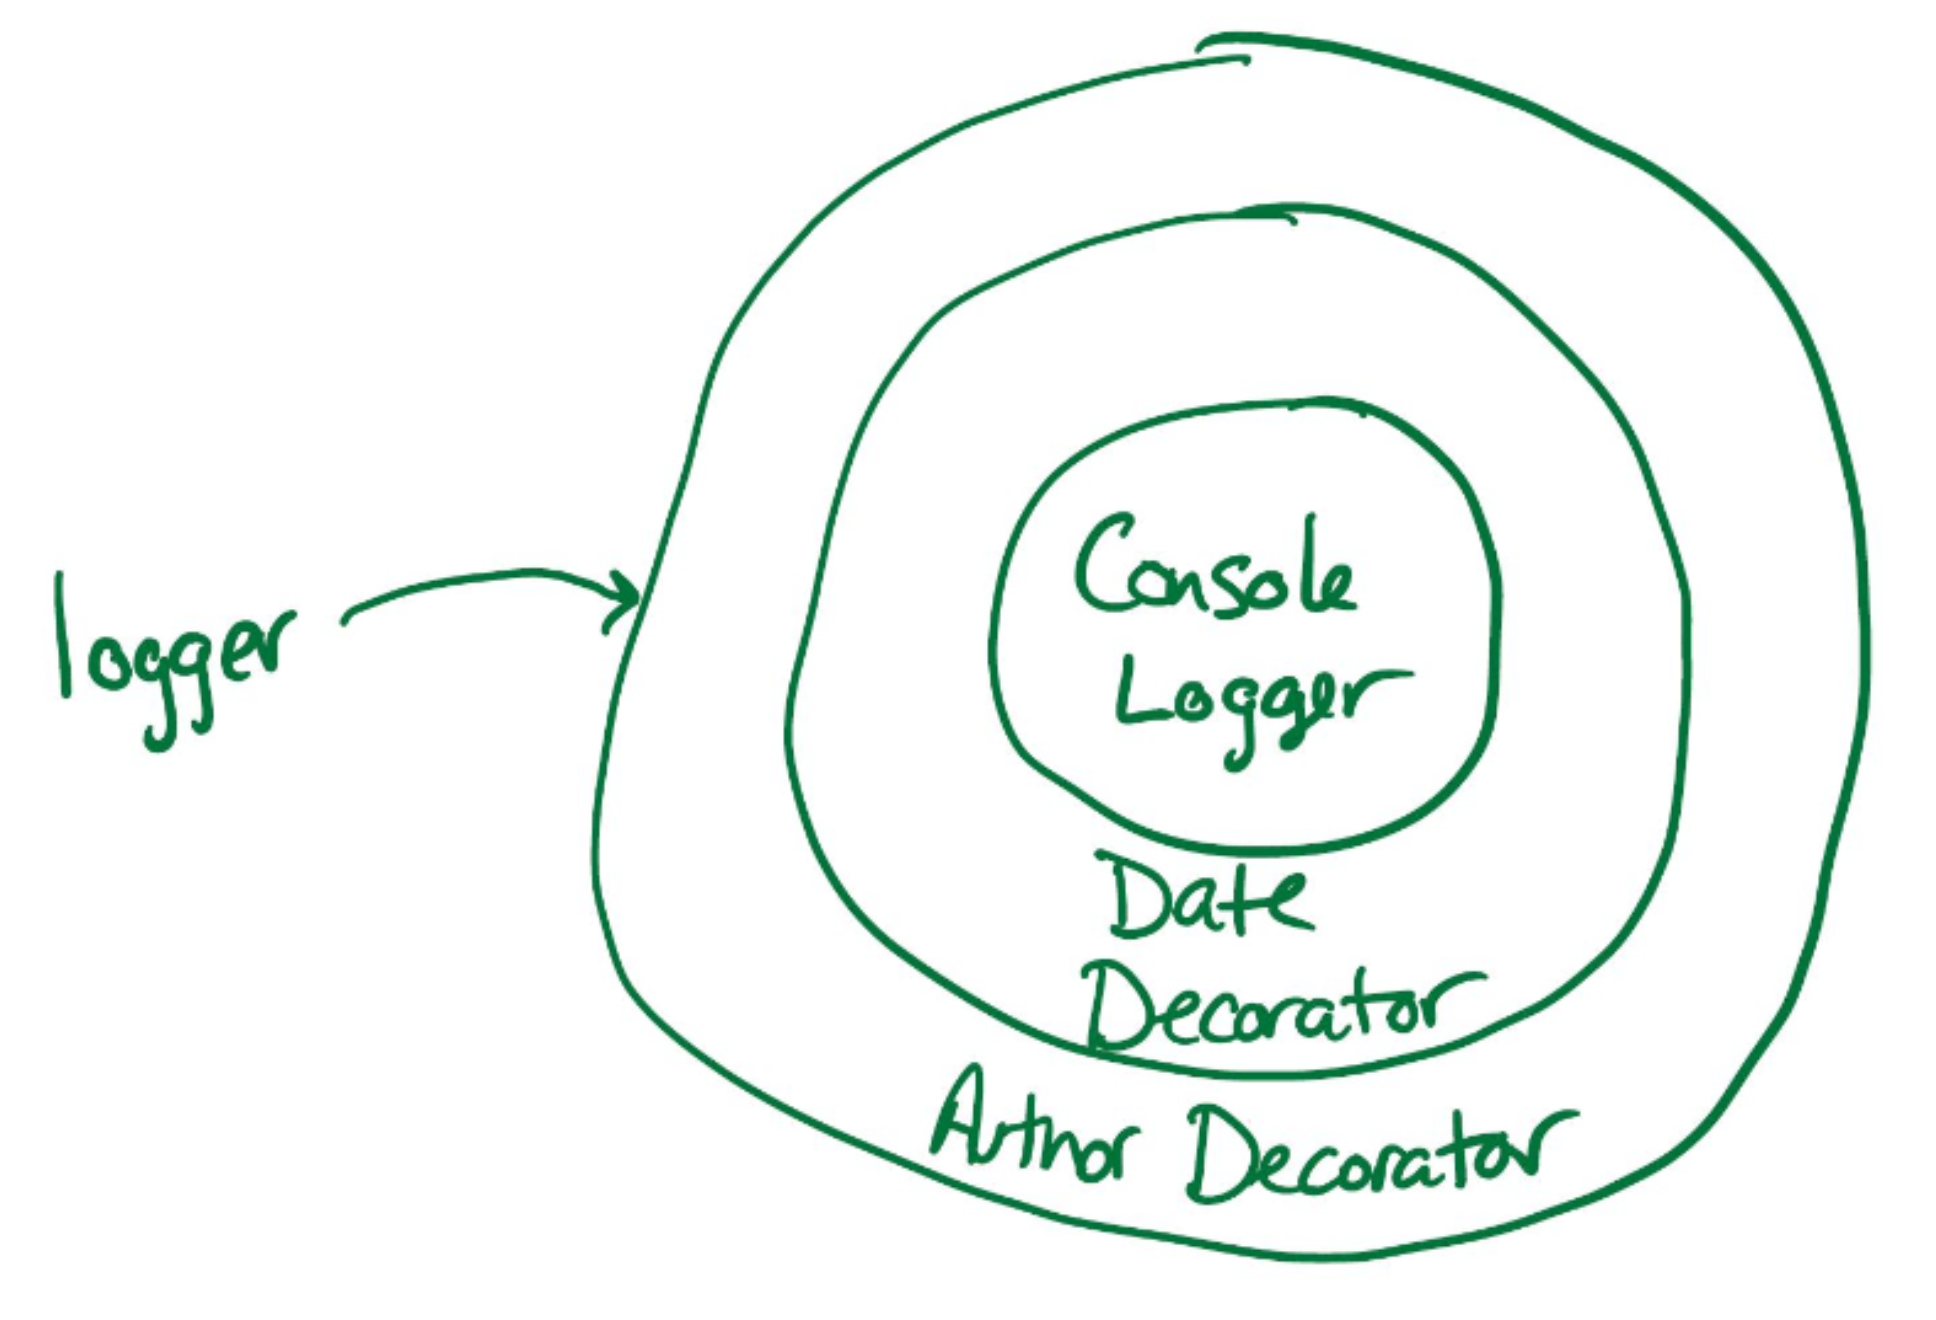 logger
Console
Logger
Date
Decorator
Author Decorator